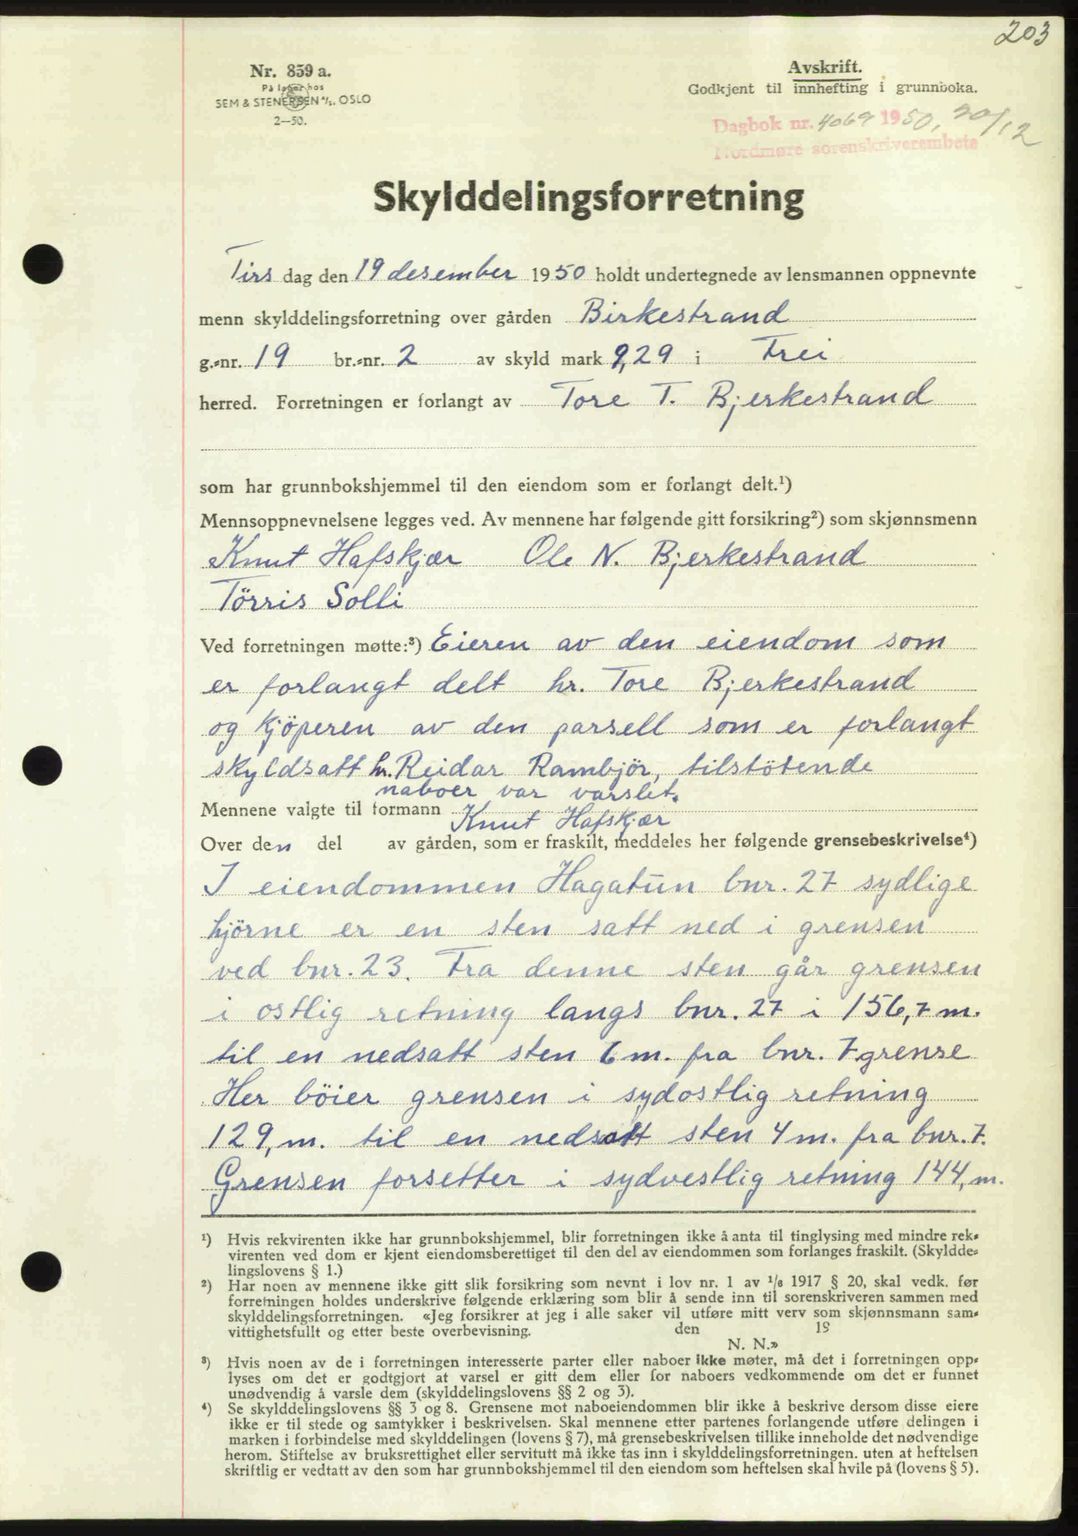 203
Nr. 859 a.
På lager hos
SEM & STENERSEN A/S. OSLO
2—50.
Avskrift.
Godkjent til innhefting i grunnboka.
Dagbok nr. 4069 1950, 20/12
Nordmøre sorenskriverembete
Skylddelingsforretning
Tirs dag den 19 desember 1950 holdt undertegnede av lensmannen oppnevnte
menn skylddelingsforretning over gården Birkestrand
g.-nr. 19 br.-nr. 2 av skyld mark 2,29 i Frei
herred. Forretningen er forlangt av Tore T. Bjerkestrand
som har grunnbokshjemmel til den eiendom som er forlangt delt.¹)
Mennsoppnevnelsene legges ved. Av mennene har følgende gitt forsikring²) som skjønnsmenn
Knut Hafskjær Ole N. Bjerkestrand
Törris Solli
Ved forretningen møtte:³) Eieren av den eiendom som
er forlangt delt hr. Tore Bjerkestrand
og kjöperen av den parsell som er forlangt
skyldsatt hr. Reidar Rambjör, tilstötende
naboer var varslet.
Mennene valgte til formann Knut Hafskjær
Over den del av gården, som er fraskilt, meddeles her følgende grensebeskrivelse⁴)
I eiendommen Hagatun bnr. 27 sydlige
hjörne er en sten satt ned i grensen
ved bnr. 23. Fra denne sten går grensen
i ostlig retning langs bnr. 27 i 156,7 m.
til en nedsatt sten 6 m. fra bnr. 7 grense
Her böier grensen i sydostlig retning
129, m. til en nedsatt sten 4 m. fra bnr. 7.
Grensen forsetter i sydvestlig retning 144, m.
¹) Hvis rekvirenten ikke har grunnbokshjemmel, blir forretningen ikke å anta til tinglysing med mindre rek-
virenten ved dom er kjent eiendomsberettiget til den del av eiendommen som forlanges fraskilt. (Skyldde-
lingslovens § 1.)
²) Har noen av mennene ikke gitt slik forsikring som nevnt i lov nr. 1 av 1/6 1917 § 20, skal vedk. før
forretningen holdes underskrive følgende erklæring som blir å sende inn til sorenskriveren sammen med
skylddelingsforretningen. «Jeg forsikrer at jeg i alle saker vil utføre mitt verv som skjønnsmann sam-
vittighetsfullt og etter beste overbevisning. den 19
N. N.»
³) Hvis noen av de i forretningen interesserte parter eller naboer ikke møter, må det i forretningen opp-
lyses om det er godtgjort at varsel er gitt dem eller for naboers vedkommende om det er funnet
unødvendig å varsle dem (skylddelingslovens §§ 2 og 3).
⁴) Se skylddelingslovens §§ 3 og 8. Grensene mot naboeiendommen blir ikke å beskrive dersom disse eiere
ikke er til stede og samtykker i beskrivelsen. Skal mennene etter partenes forlangende utføre delingen i
marken i forbindelse med skylddelingen (lovens § 7), må grensebeskrivelsen tillike inneholde det nødvendige
herom. Stiftelse av bruksrettighet eller servitutt må ikke tas inn i skylddelingsforretningen. uten at heftelsen
skriftlig er vedtatt av den som har grunnbokshjemmel til den eiendom som heftelsen skal hvile på (lovens § 5).